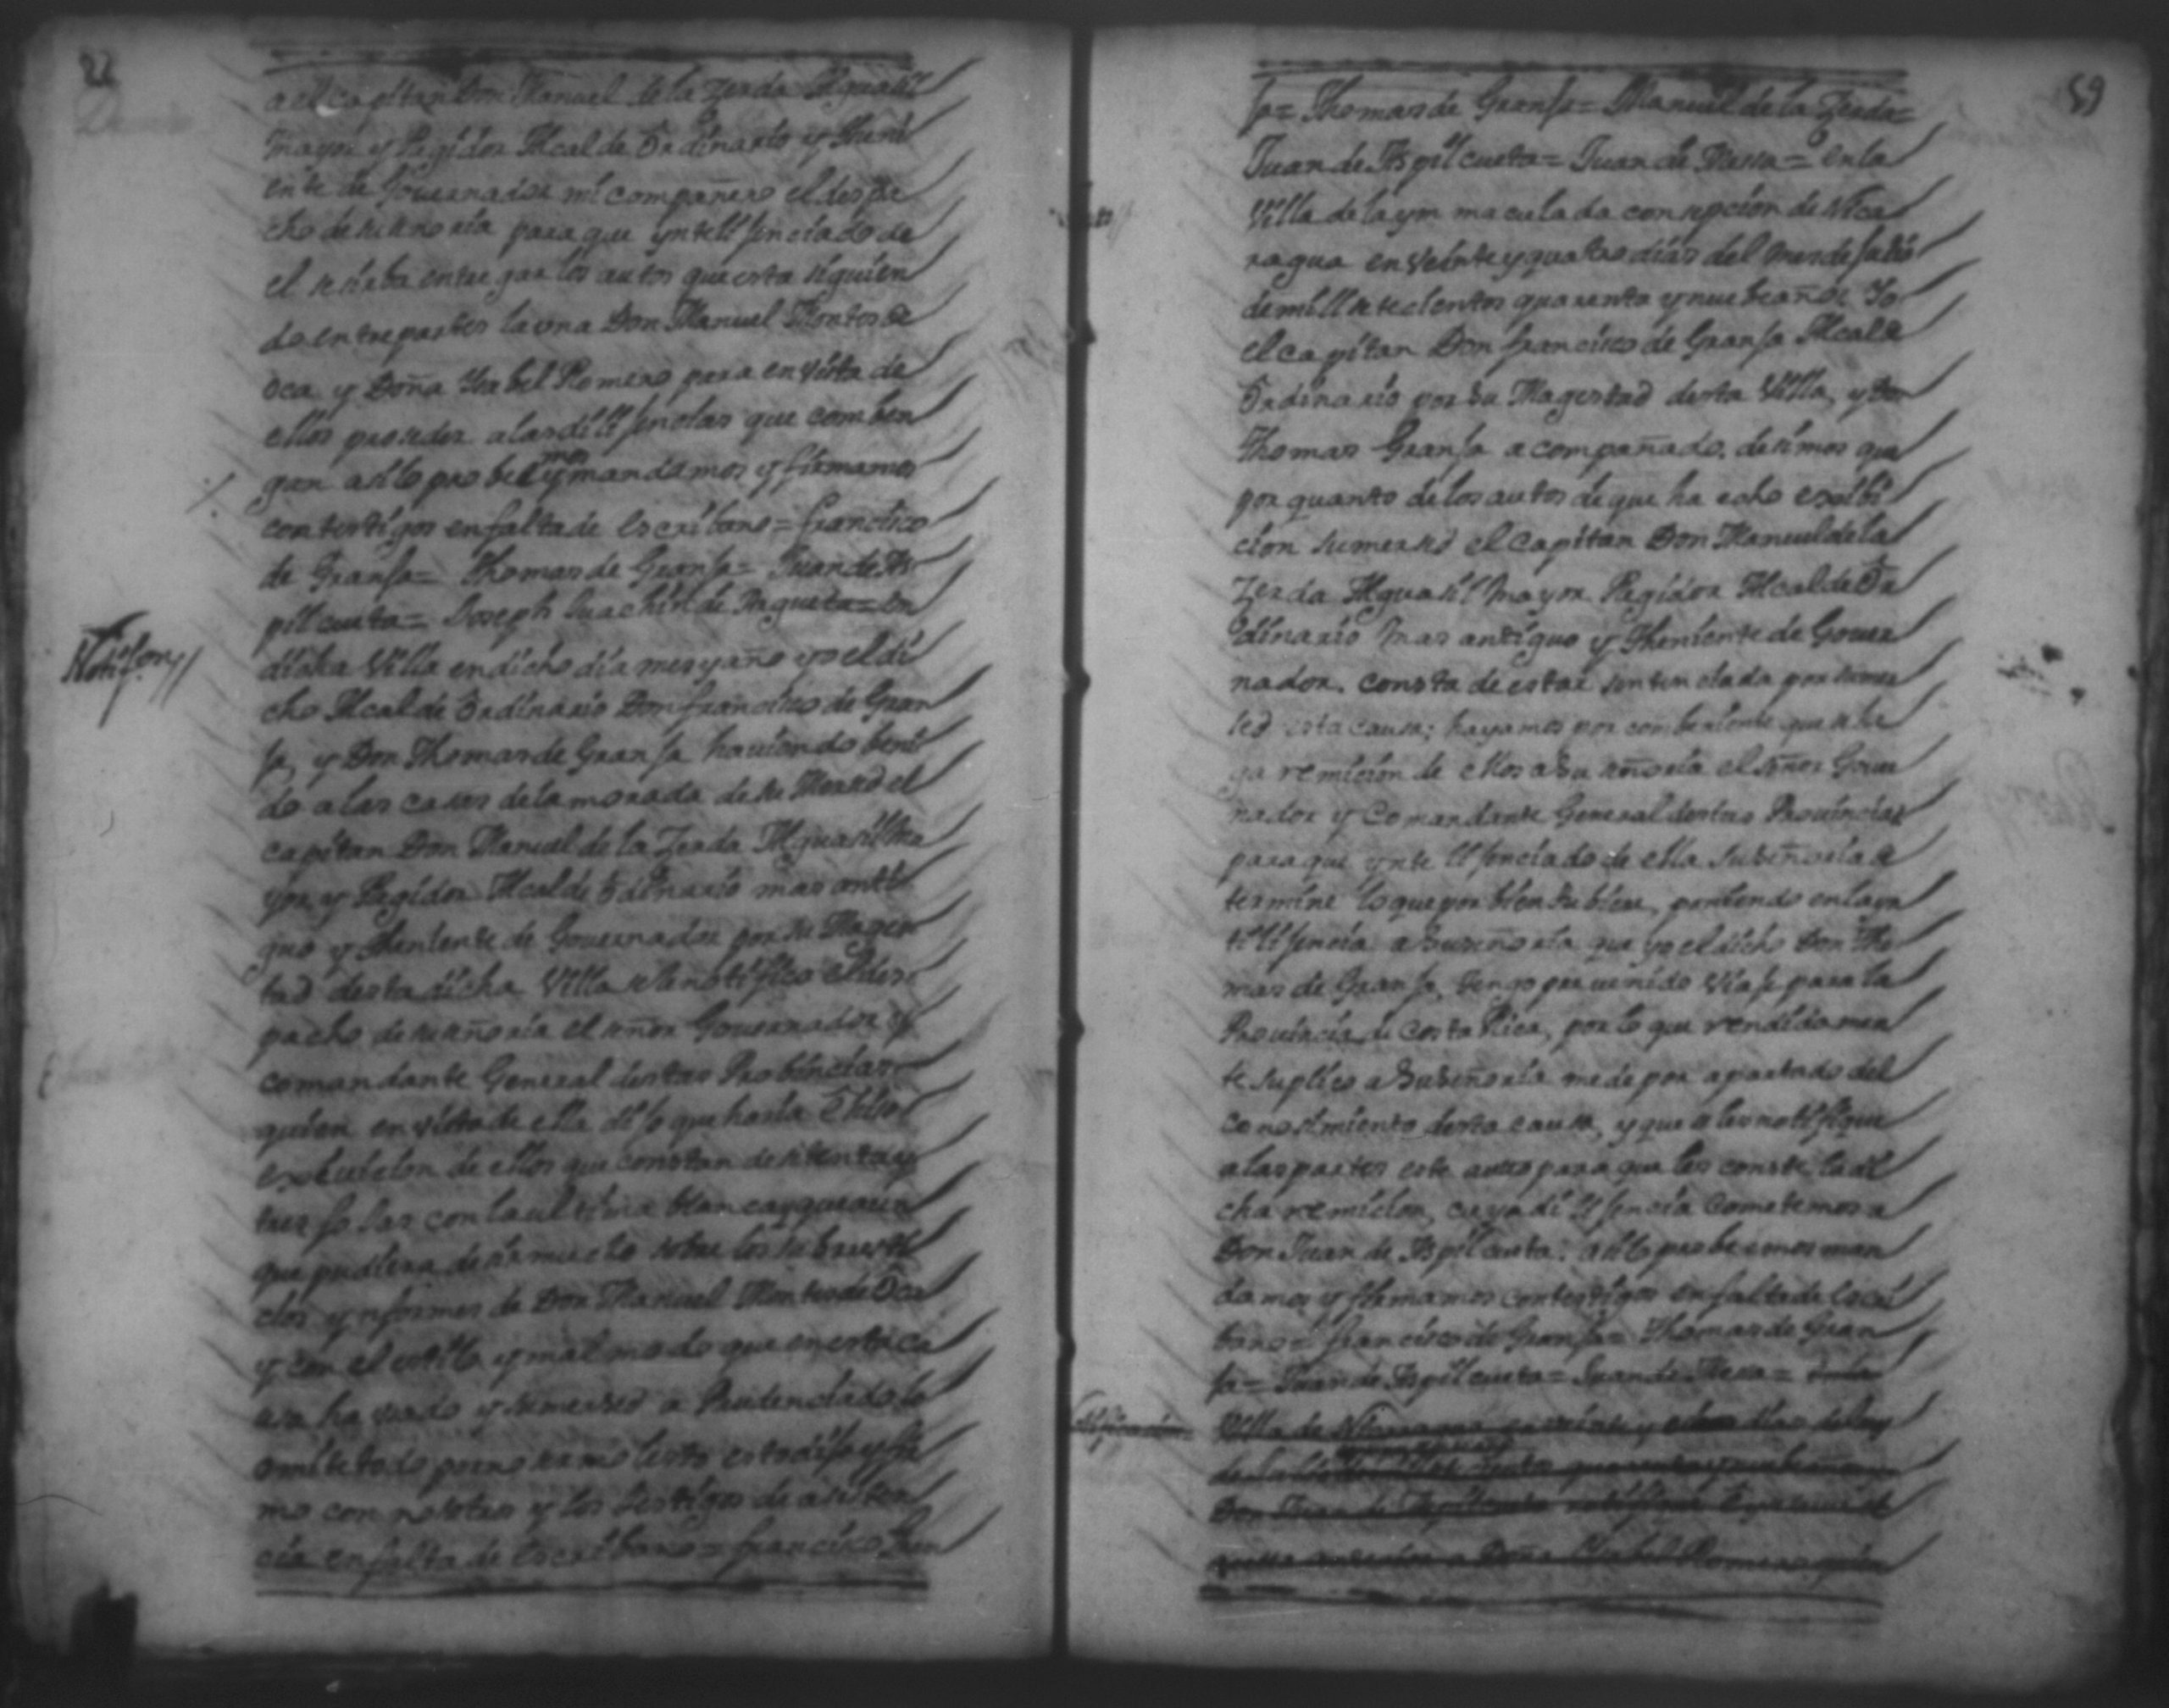 22
a el Capitan Don Manuel de la Zerda Alguasil
mayor y Regidor Alcalde Ordinario y Theni
ente de Governador mi compañero el despa
cho de su señoria para que ynteligenciado de
el se sirba entregar los autos que esta siguien
do entre partes la una Don Manuel Montes de
Oca y Doña Ysabel Romero para en vista de
ellos proseder a las diligencias que comben
gan asi lo probeymos mandamos y firmamos
con testigos en falta de Escribano = Francisco
de Granja = Thomas de Granja = Juan de As
pil cueta = Joseph Juachin de = En
dicha Villa en dicho dia mes y año yo el di
cho Alcalde Ordinario Don Francisco de Gran
ja, y Don Thomas de Granja haviendo beni
do a las casas de la morada de su Merced el
Capitan Don Manuel de la Zerda Alguasil Ma
yor y Regidor Alcalde Ordinario mas anti
guo y Theniente de Governador por su Mages
tad desta dicha Villa se le notifico el des
pacho de su señoria el señor Governador y
comandante General destas Probincias
quien en vista de ella dijo que hasia
exsibicion de ellos que constan de setenta y
tres fojas con la ultima blanca y que aun
que pudiera desir mucho sobre los
cios ynformes de Don Manuel Montes de Oca
y con el estilo y mal modo que en esta ca
usa ha usado y su merced a Prudenciado lo
omite todo por no ser molesto esto dijo y fir
mo con nosotros y los testigos de asisten
cia en falta de Escribano = Francisco Gran
Notifon
59
ja = Thomas de Granja = Manuel de la Zerda =
Juan de Aspil cueta = Juan de Mesa = en la
Villa de la ynmaculada consepcion de Nica
ragua en veinte y quatro dias del mes de Julio
de mill setecientos quarenta y nuebe años Yo
el Capitan Don Francisco de Granja Alcalde
Ordinario por Su Magestad desta Villa, y Don
Thomas Granja acompañado. desimos que
por quanto de los autos de que ha echo exsibi
cion su merced el Capitan Don Manuel de la
Zerda Alguasil Mayor Regidor Alcalde Or
dinario mas antiguo y Theniente de Gover
nador. consta de estar sentenciada por su mer
sed esta causa; hayamos por combeniente que se ha
ga remicion de ellos a Su señoria el señor Gover
nador y Comandante General destas Provincias
para que ynteligenciado de ella Su Señoria de
termine lo que por bien tubiere, poniendo en la yn
teligencia a Su Señoria que yo el dicho Don Tho
mas de Granja, tengo prevenido viaje para la
Provincia de Costa Rica, por lo que rendidamen
te suplico a Su Señoria me de por apartado del
conosimiento desta causa, y que se les notifique
a las partes este auto para que les conste la di
cha remicion, cuya diligencia cometemos a
Don Juan de Aspil cueta: asi lo probeemos man
damos y firmamos con testigos en falta de Escri
bano = Francisco de Granja = Thomas de Gran
ja = Juan de Aspil cueta = Juan de Mesa = En la
Villa de Nicaragua en veinte y dias del mes
de Julio de quarenta y nuebe años
Don Juan de Aspilcueta notifique
a Doña Ysabel Romero